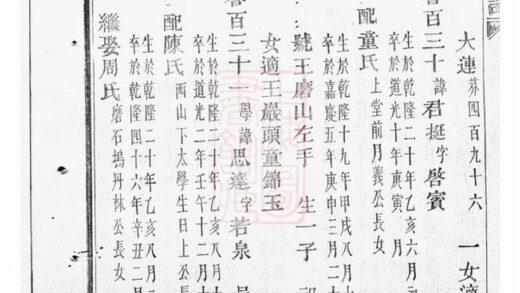 大連 芬四百九十六 一女適
百三十 諱君挺字啓賓
生於乾隆二十年乙亥六月
卒於道光十年庚寅 月
配童氏 上堂前月義公長女
生於乾隆十九年甲戌八月十
卒於嘉慶五年庚申三月二十
號王磨山左手 生一子
女適王巖頭童錦玉
百三十一 學諱思達字若泉
生於乾隆二十年乙亥八月
卒於道光二年壬午十二月
配陳氏 西山下太學生日上公長
生於乾隆二十年乙亥八月二
卒於乾隆四十六年辛丑二月
繼娶周氏 磨石塢丹林公長女